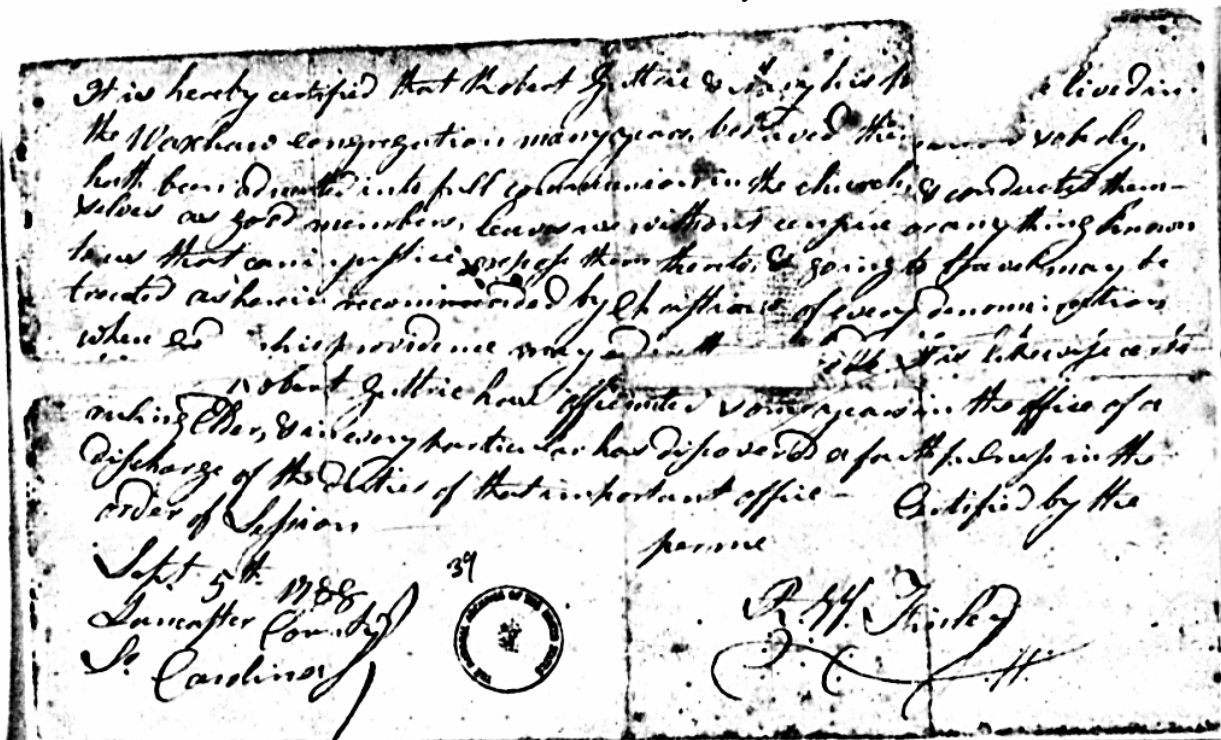 It is hereby certified that Robert Guttrie & Mary his lived in
the Waxhaw congregation many years, behaved soberly,
hath been admitted into full communion in the church, & conducted them-
selves as good members, leaves us without censure or any thing known
to us that can in justice expose them thereto, & going to travel may be
treated as herein recommended by Christians of every denomination
where his providence may It is likewise
Robert Guttrie has officiated some years in the office of a
ruling Elder, & in every particular has discovered a faithfulness in the
discharge of the duties of that important office — Certified by the
order of Session
per me
Sept 5th 1788
Lancaster County
So. Carolina
39
R. W. Finley